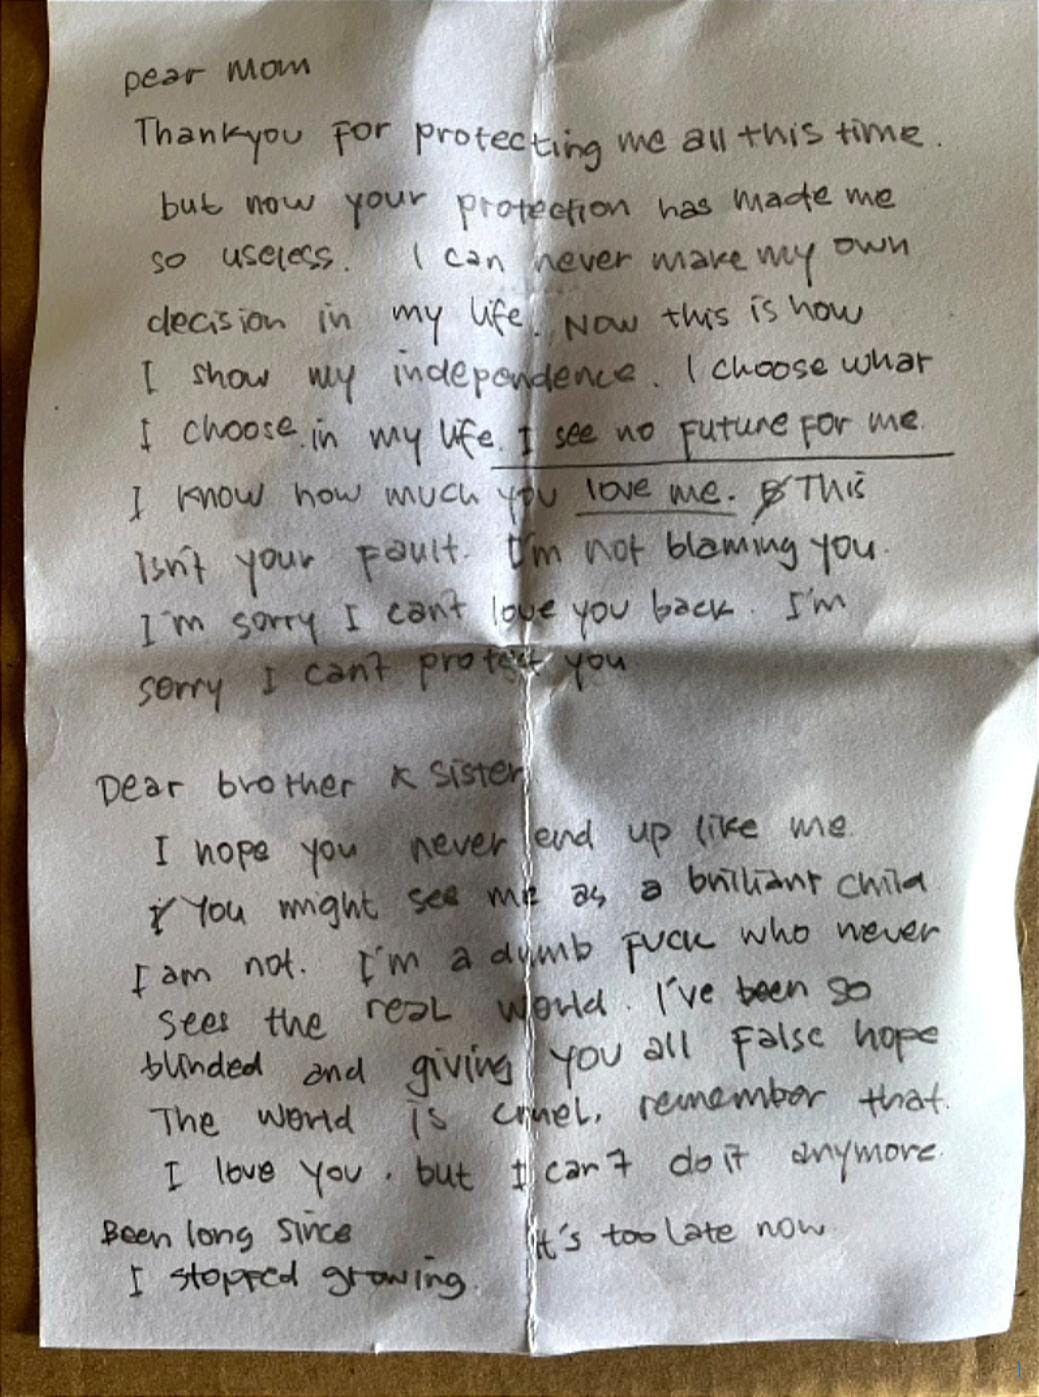 Dear Mom
Thankyou for protecting me all this time.
but now your protection has made me
so useless. I can never make my own
decision in my life. Now this is how
I show my independence. I choose what
I choose in my life. I see no future for me.
I know how much you love me. This
Isn't your fault. I'm not blaming you.
I'm sorry I can't love you back. I'm
sorry I can't protect you
Dear brother & sister
I hope you never end up like me.
You might see me as a brilliant child
I am not. I'm a dumb fuck who never
sees the real world. I've been so
blinded and giving you all false hope
The world is cruel, remember that.
I love you. but I can't do it anymore.
Been long since
I stopped growing.
It's too late now.